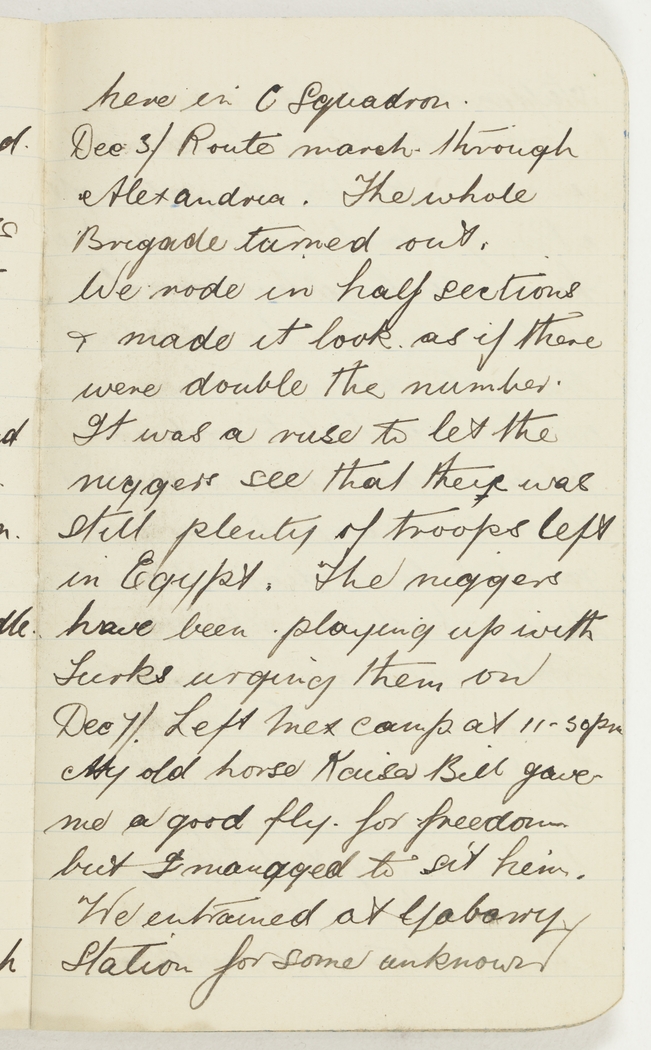 here in C Squadron.
d.
Dec 3/ Route march through
Alexandria. The whole
Brigade turned out.
We rode in half sections
& made it look as if there
were double the number.
It was a ruse to let the
niggers see that there was
still plenty of troops left
in Egypt. The niggers
have been playing up with
Turks urging them on
Dec 7/ Left Mex camp at 11-30pm
My old horse Kaisa Bill gave
me a good fly. for freedom
but I managed to sit him.
We entrained at Gabarry
Station for some unknown